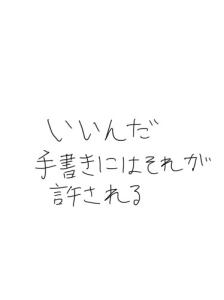 いいんだ
手書きにはそれが
許される